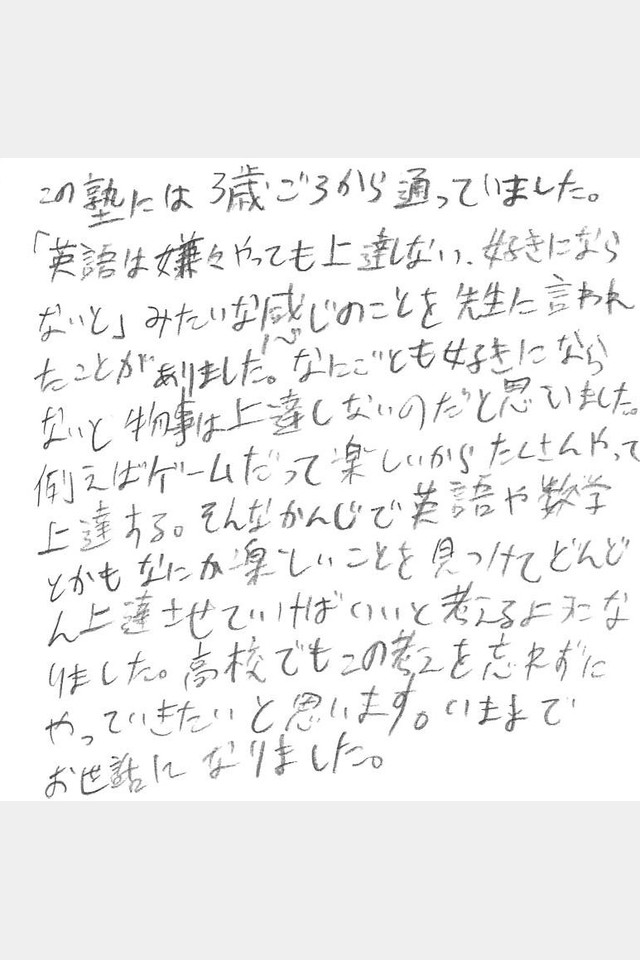 この塾には3歳ごろから通っていました。
「英語は嫌々やっても上達しない、好きになら
ないと」みたいな感じのことを先生に言われ
たことがありました。なにごとも好きになら
ないと物事は上達しないのだと思いました。
例えばゲームだって楽しいからたくさんやって
上達する。そんなかんじで英語や数学
とかもなにか楽しいことを見つけてどんど
ん上達させていければいいと考えるようにな
りました。高校でもこの考えを忘れずに
やっていきたいと思います。いままで
お世話になりました。